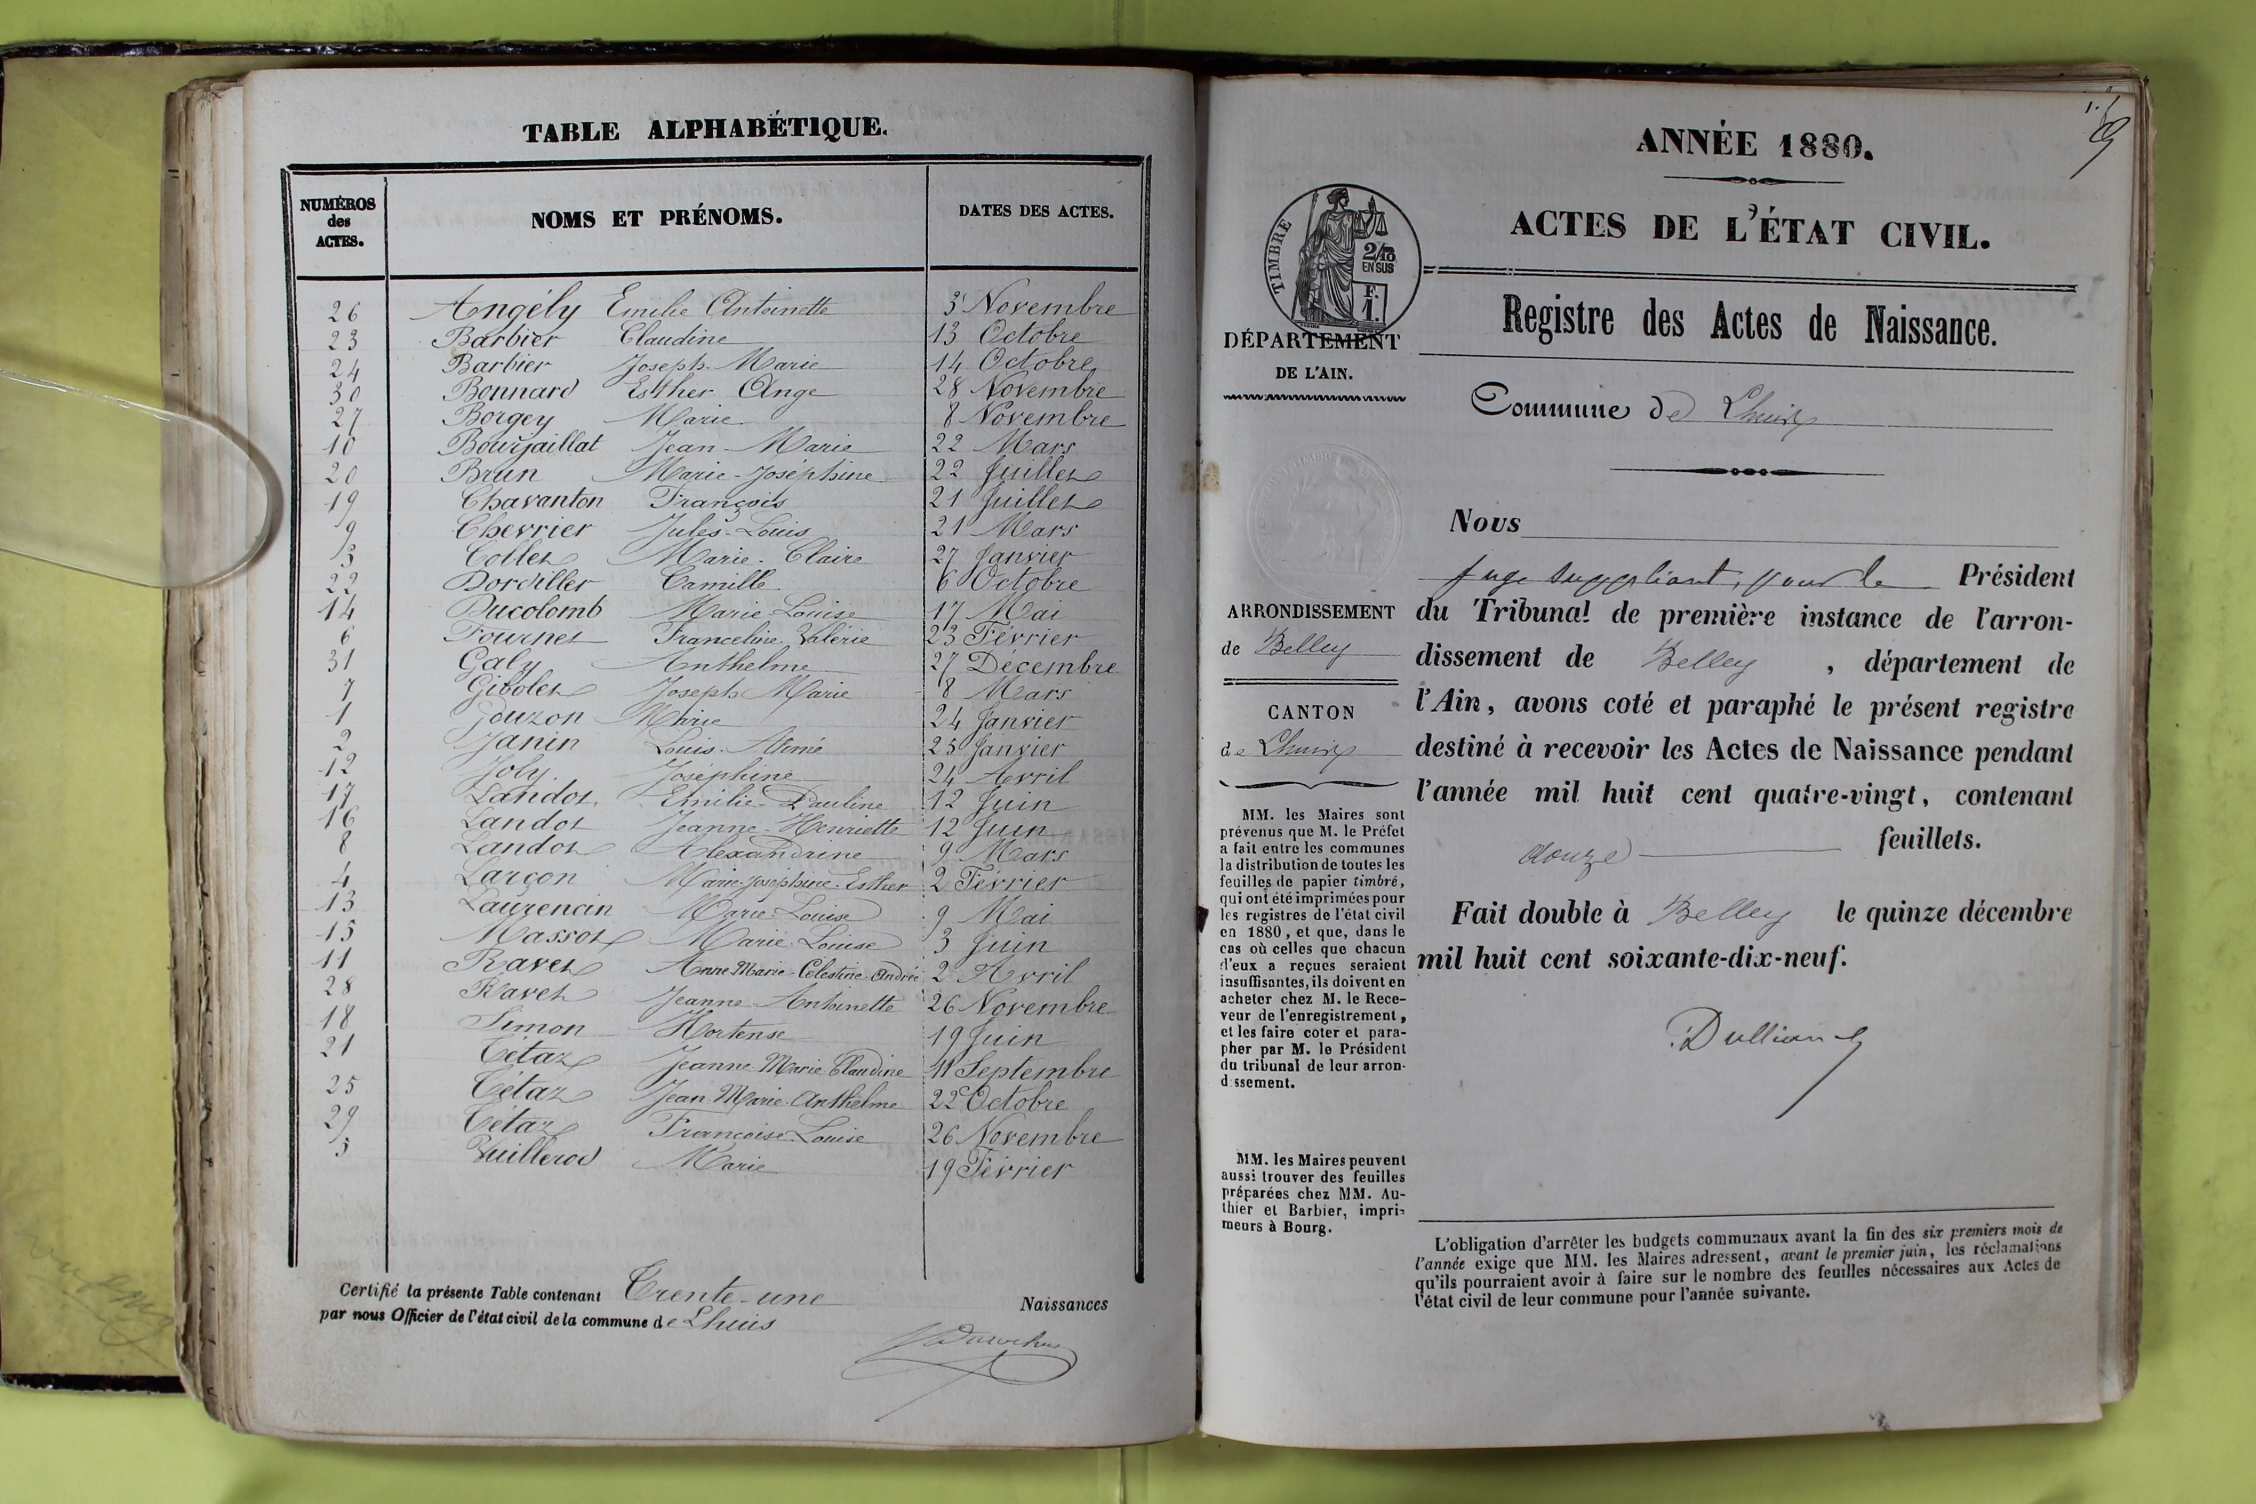 TABLE ALPHABÉTIQUE.
NUMÉROS des ACTES. NOMS ET PRÉNOMS. DATES DES ACTES.
26 Angély Emilie Antoinette 3 Novembre
23 Barbier Claudine 13 Octobre
24 Barbier Joseph-Marie 14 Octobre
30 Bonnard Esther Ange 28 Novembre
27 Borgey Marie 8 Novembre
10 Bourjaillat Jean-Marie 22 Mars
20 Brun Marie-Joséphine 22 Juillet
19 Chavanton François 21 Juillet
9 Chevrier Jules-Louis 21 Mars
3 Collet Marie-Claire 27 Janvier
22 Dordiller Camille 6 Octobre
14 Ducolomb Marie-Louise 17 Mai
6 Fournet Franceline Valérie 23 Février
31 Galy Anthelme 27 Décembre
7 Gibolet Joseph Marie 8 Mars
1 Gouzon Marie 24 Janvier
2 Janin Louis-Aimé 25 Janvier
12 Joly Joséphine 24 Avril
17 Landot Emilie-Pauline 12 Juin
16 Landot Jeanne-Henriette 12 Juin
8 Landot Alexandrine 9 Mars
4 Larçon Marie-Joséphine-Esther 2 Février
13 Laurencin Marie-Louise 9 Mai
15 Massot Marie-Louise 3 Juin
11 Ravet Anne-Marie-Célestine-Andrée 2 Avril
28 Ravet Jeanne-Antoinette 26 Novembre
18 Simon Hortense 19 Juin
21 Tétaz Jeanne-Marie Claudine 11 Septembre
25 Tétaz Jean-Marie-Anthelme 22 Octobre
29 Tétaz Françoise-Louise 26 Novembre
5 Vuillerod Marie 19 Février
Certifié la présente Table contenant Trente-une Naissances
par nous Officier de l'état civil de la commune de Lhuis
ANNÉE 1880.
ACTES DE L'ÉTAT CIVIL.
TIMBRE
2/10
EN SUS
F.
1.
DÉPARTEMENT
DE L'AIN.
Registre des Actes de Naissance.
Commune de Lhuis
Nous
juge suppléant, pour le Président
du Tribunal de première instance de l'arron-
dissement de Belley, département de
l'Ain, avons coté et paraphé le présent registre
destiné à recevoir les Actes de Naissance pendant
l'année mil huit cent quatre-vingt, contenant
douze feuillets.
Fait double à Belley le quinze décembre
mil huit cent soixante-dix-neuf.
ARRONDISSEMENT
de Belley
CANTON
de Lhuis
MM. les Maires sont
prévenus que M. le Préfet
a fait entre les communes
la distribution de toutes les
feuilles de papier timbré,
qui ont été imprimées pour
les registres de l'état civil
en 1880, et que, dans le
cas où celles que chacun
d'eux a reçues seraient
insuffisantes, ils doivent en
acheter chez M. le Rece-
veur de l'enregistrement,
et les faire coter et para-
pher par M. le Président
du tribunal de leur arron-
dissement.
MM. les Maires peuvent
aussi trouver des feuilles
préparées chez MM. Au-
thier et Barbier, impri-
meurs à Bourg.
L'obligation d'arrêter les budgets communaux avant la fin des six premiers mois de
l'année exige que MM. les Maires adressent, avant le premier juin, les réclamations
qu'ils pourraient avoir à faire sur le nombre des feuilles nécessaires aux Actes de
l'état civil de leur commune pour l'année suivante.